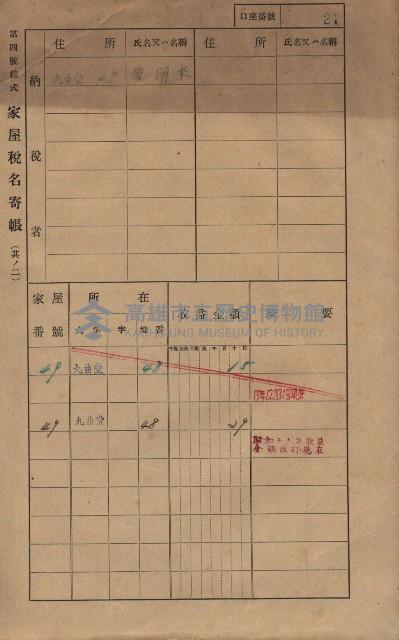 第四號樣式 家屋稅名寄帳 (其ノ二)
口座番號 21
住所 氏名又ハ名稱 住所 氏名又ハ名稱
納稅者
九曲堂 48
家屋番號 所在 大字 字 地番 收益金額 摘要
高雄市立歷史博物館
KAOHSIUNG MUSEUM OF HISTORY
49 九曲堂 48 15
49 九曲堂 48 29
昭和十八年收益
金額改訂現在